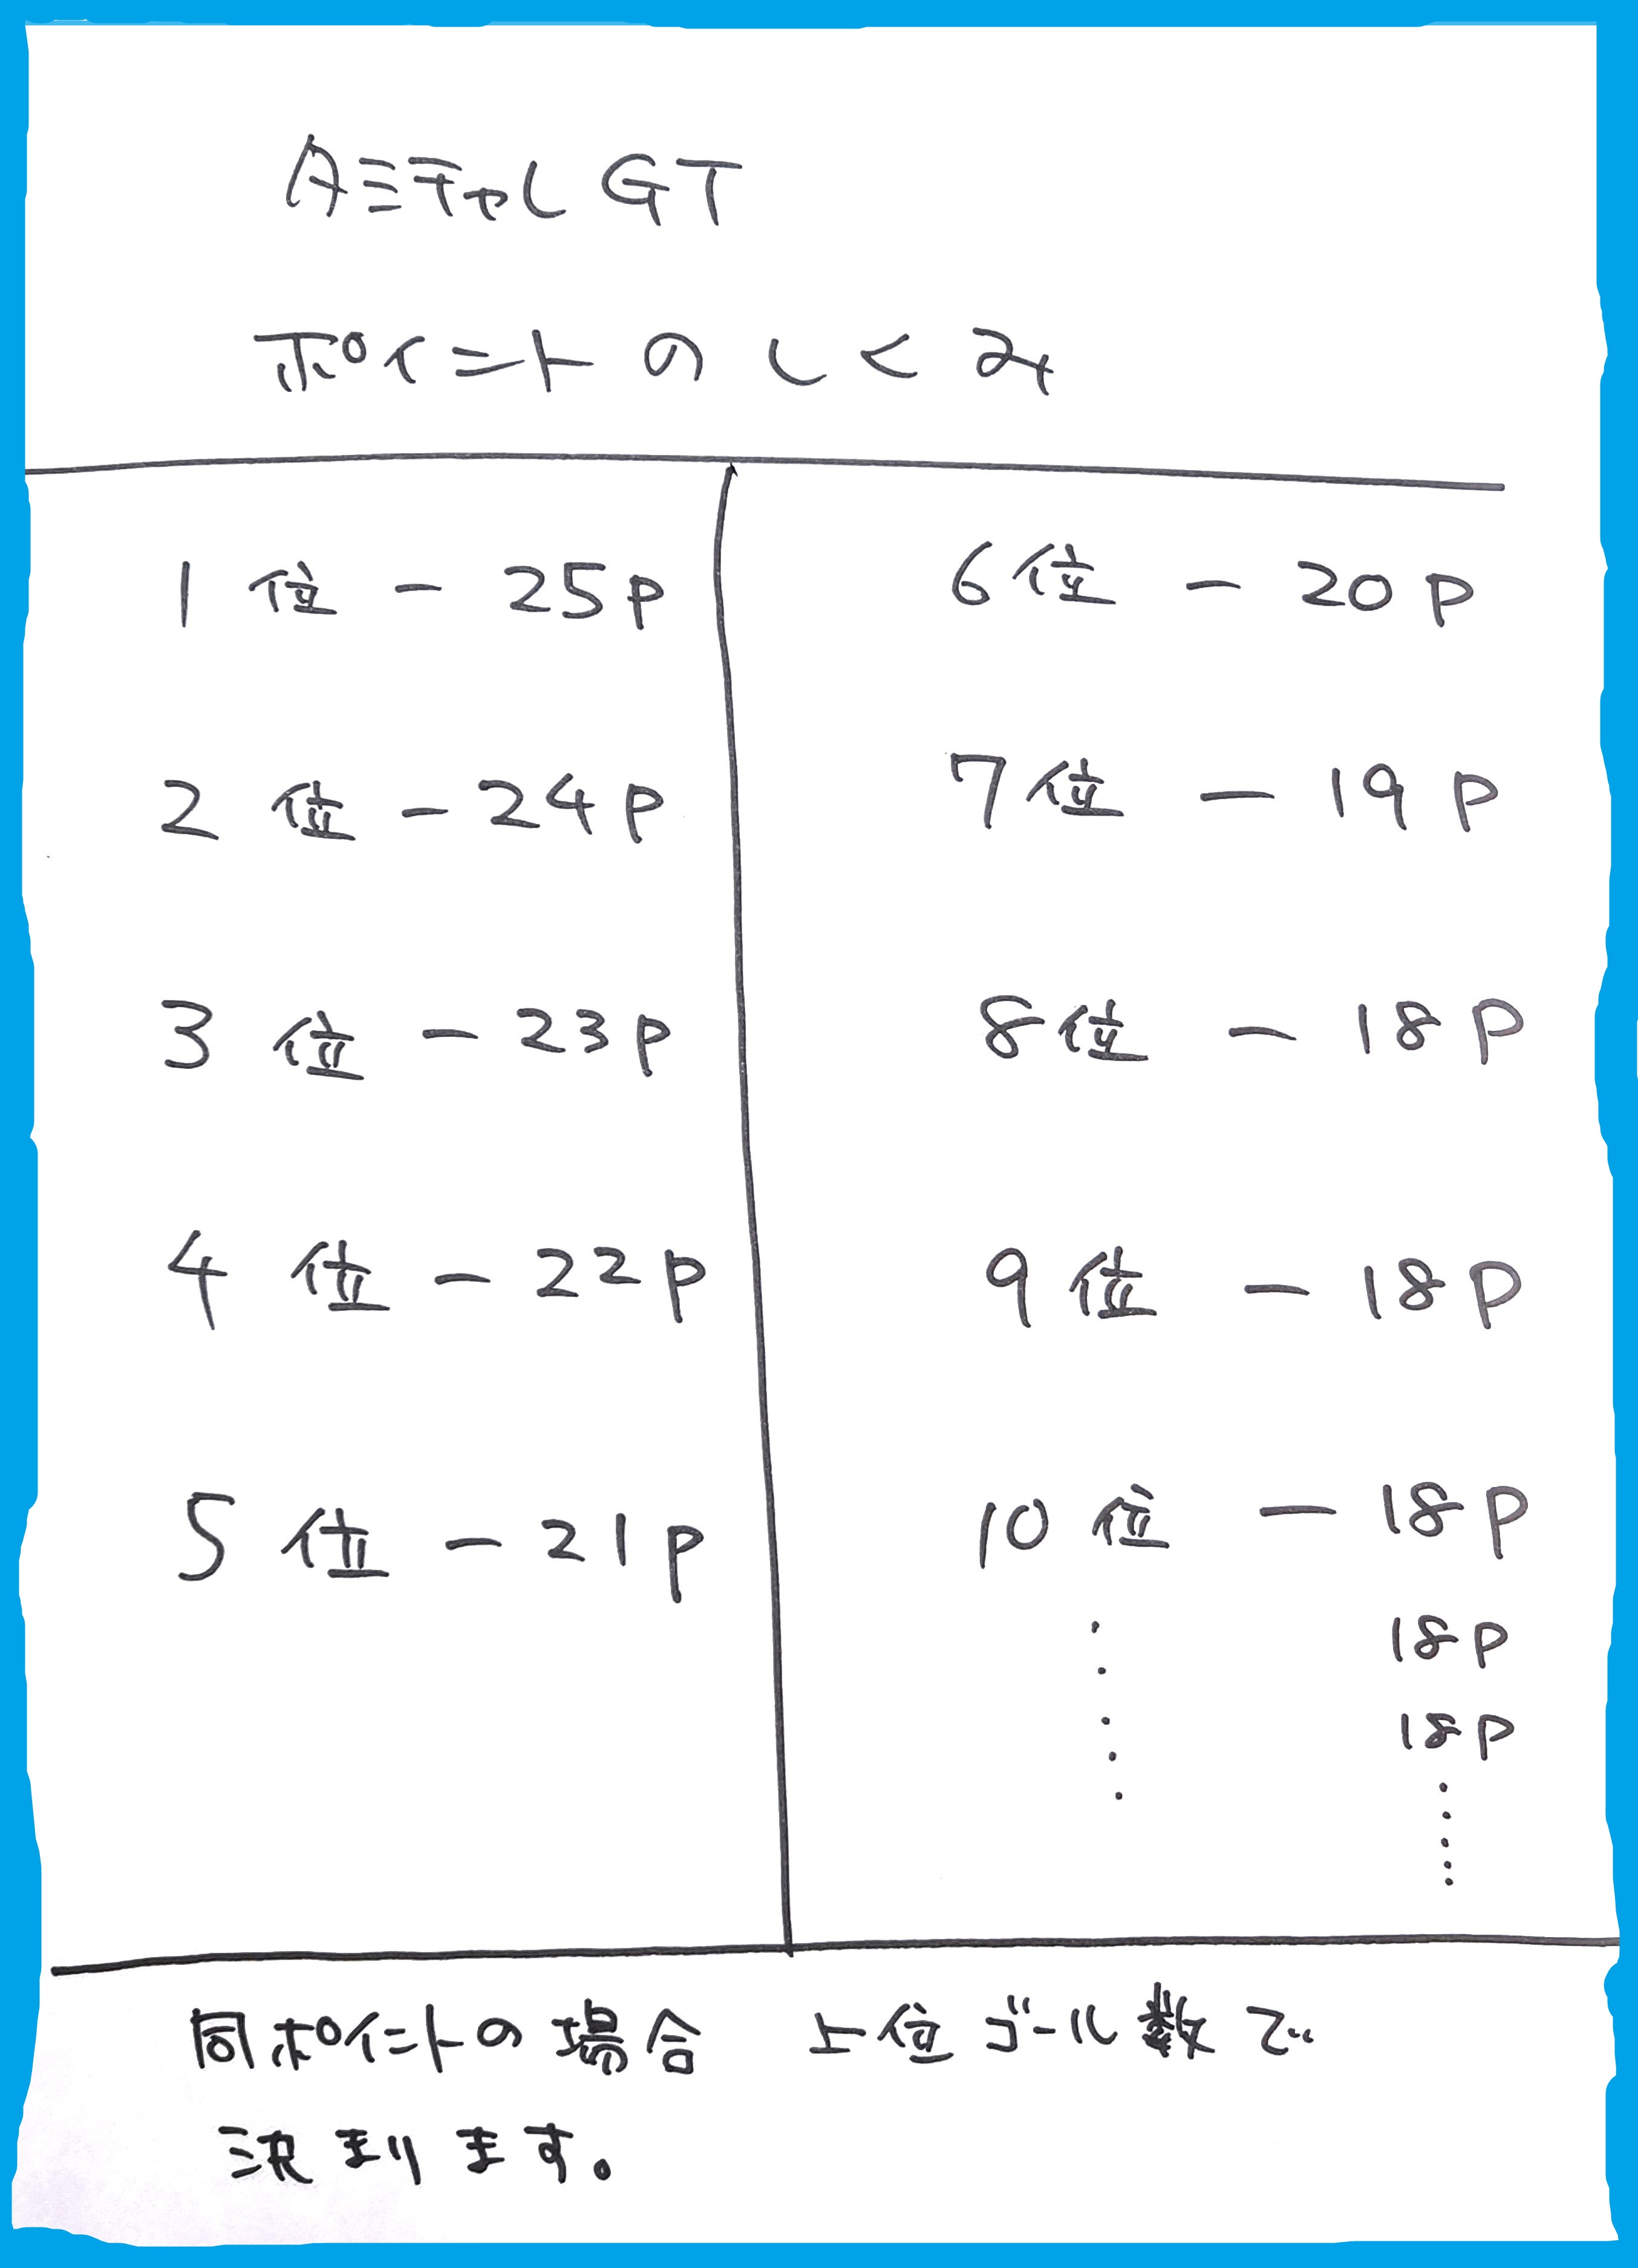 AミチャしGT
ポイントのしくみ
1位 － 25p
2位 － 24p
3位 － 23p
4位 － 22p
5位 － 21p
6位 － 20p
7位 － 19p
8位 － 18p
9位 － 18p
10位 － 18p
18p
18p
同ポイントの場合 上位ゴール数で
決まります。